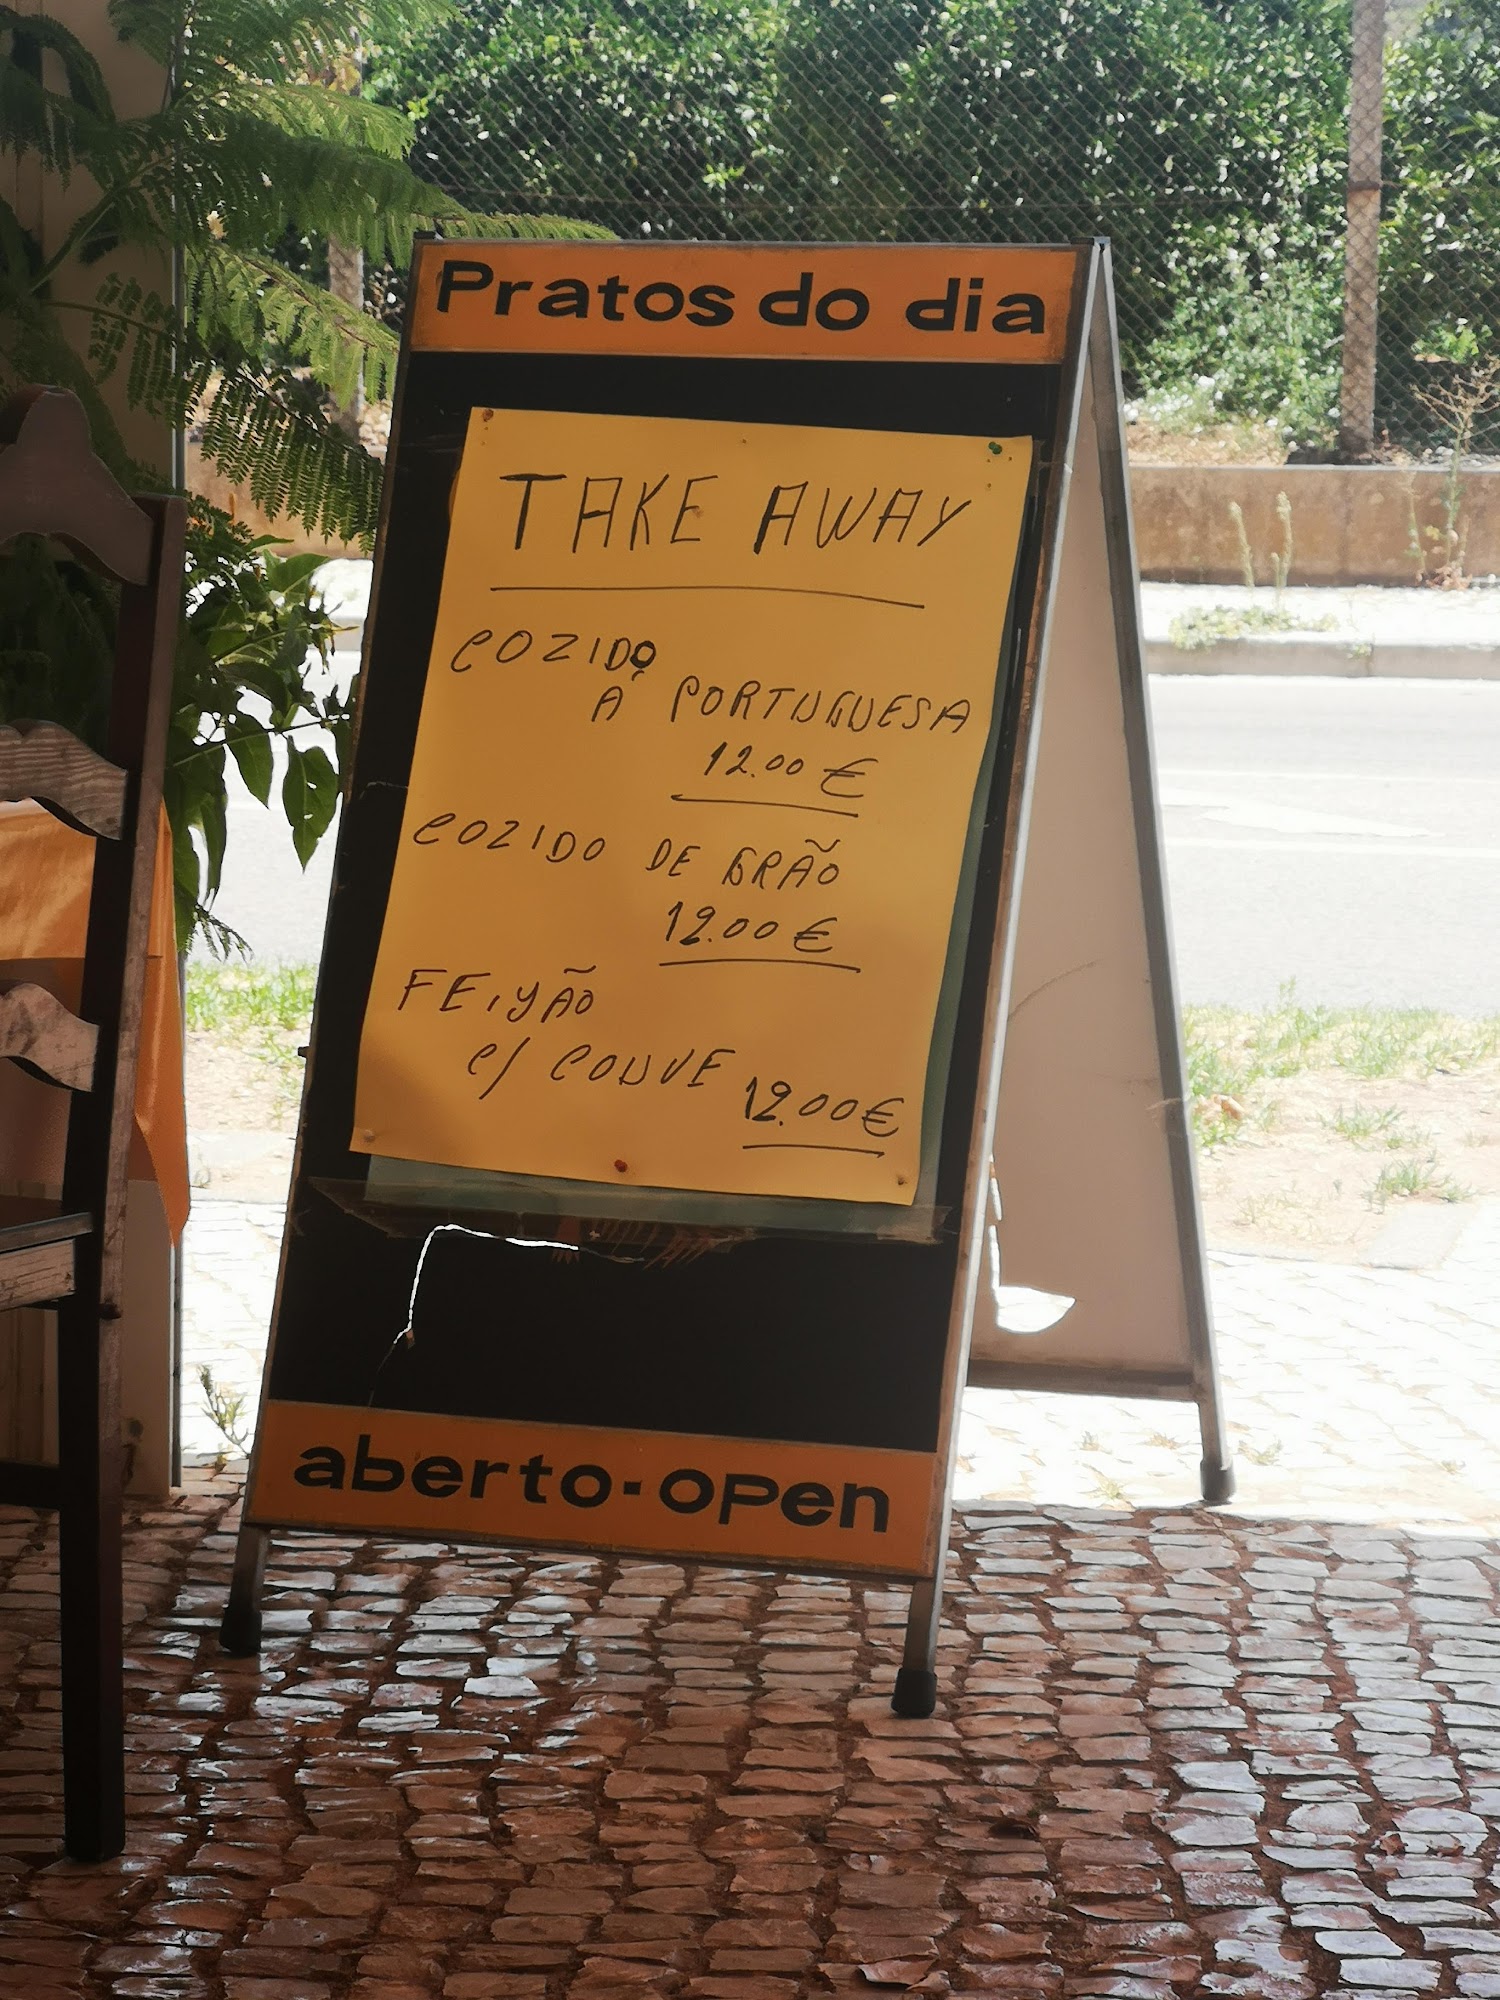 Pratos do dia
TAKE AWAY
COZIDO
À PORTUGUESA
12.00 €
COZIDO DE GRÃO
12.00 €
FEIJÃO
C/ COUVE
12.00€
aberto-open